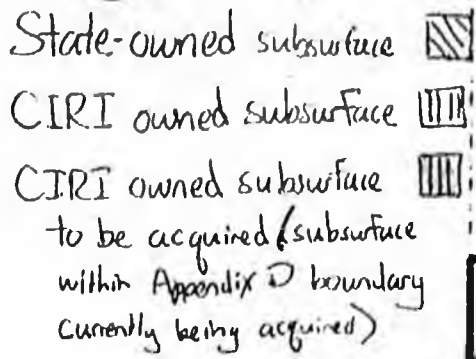 State-owned subsurface
CIRI owned subsurface
CIRI owned subsurface
to be acquired (subsurface
within Appendix D boundary
currently being acquired)